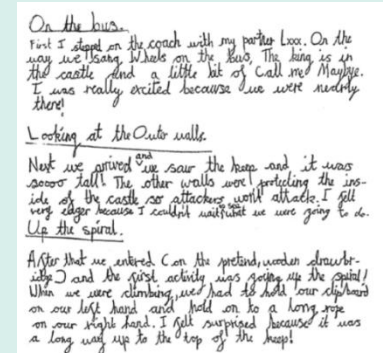 On the bus.
First I stepped on the coach with my partner Lxxx. On the
way we sang Wheels on the Bus, The king is in
the castle and a little bit of Call me Maybye.
I was really excited because we were nearly
there!
Looking at the Outer walls.
Next we arrived and we saw the keep and it was
soooo tall! The other walls were protecting the ins-
ide of the castle so attackers won't attack. I felt
very edger because I couldn't wait what we were going to do.
Up the spiral.
After that we entered (on the pretend, wooden drawbr-
idge) and the first activity was going up the spiral!
When we were climbing, we had to hold our clipboard
on our left hand and hold on to a long rope
on our right hand. I felt surprised because it was
a long way up to the top of the keep!